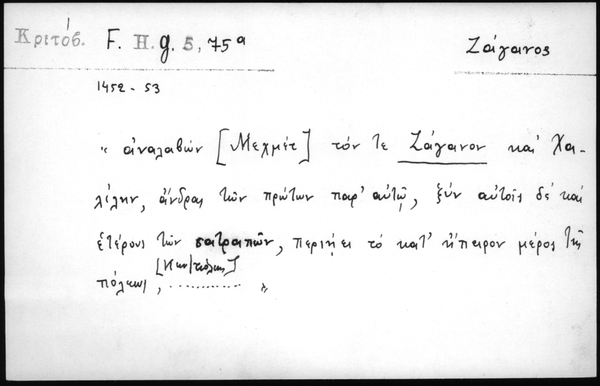 Κριτόβ. F. H. g. 5, 75a Ζάγανος
1452-53
"ἀναλαβών [Μεχμέτ] τόν τε Ζάγανον καί Χα-
λίλην, ἄνδρας τῶν πρώτων παρ' αὐτῷ, ξύν αὐτοῖς δέ καί
ἑτέρους τῶν σατραπῶν, περιῄει τό κατ' ἤπειρον μέρος τῆς
πόλεως, ............ "